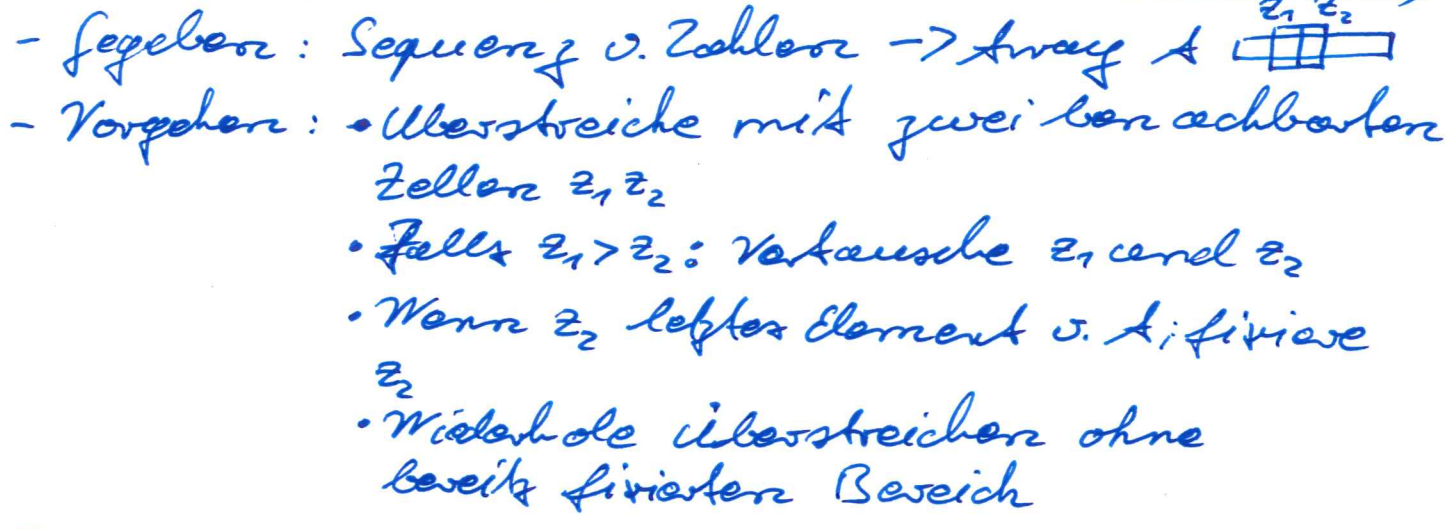 - Gegeben: Sequenz v. Zahlen -> Array A z₁ z₂
- Vorgehen: • Überstreiche mit zwei benachbarten
Zellen z₁ z₂
• Falls z₁ > z₂: Vertausche z₁ und z₂
• Wenn z₂ letztes Element v. A; fixiere
z₂
• Wiederhole Überstreichen ohne
bereits fixierten Bereich